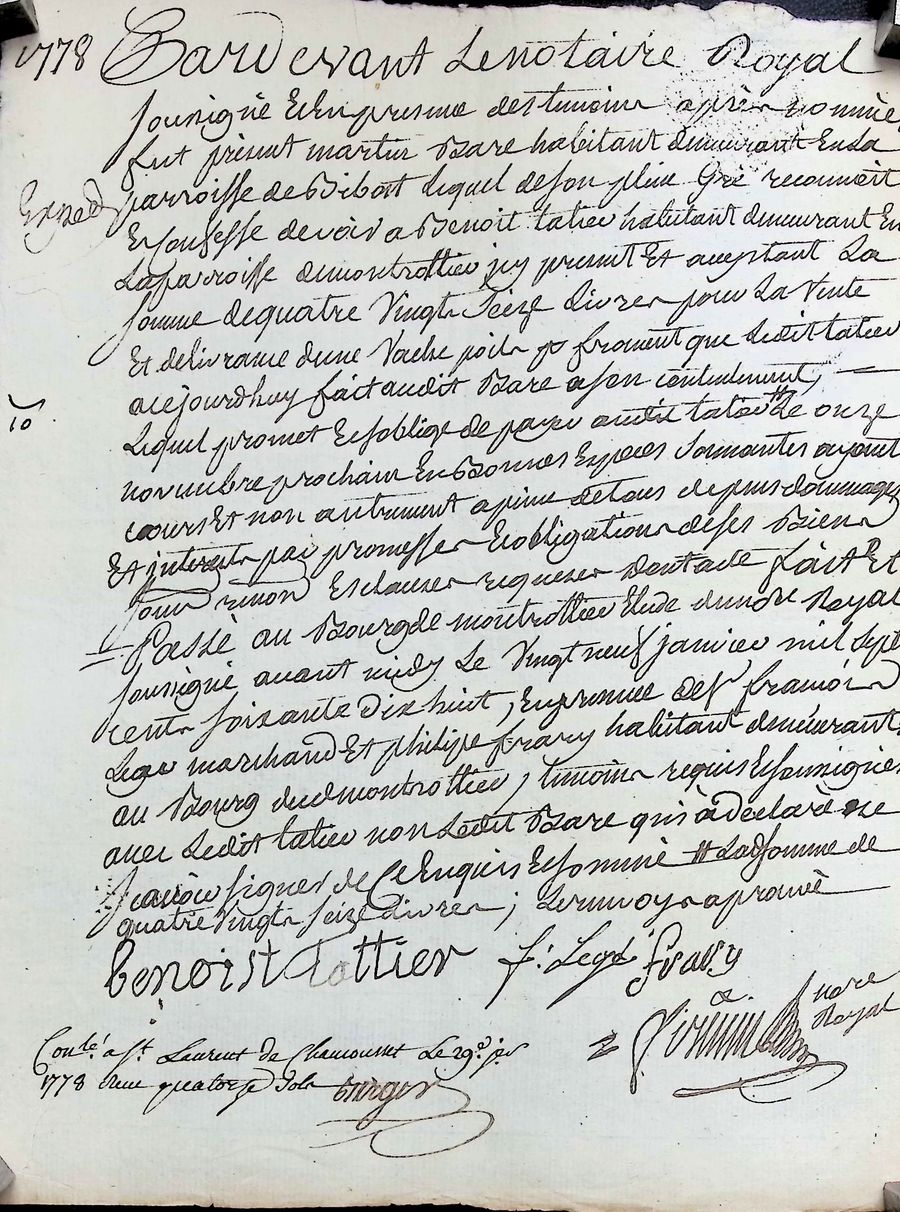 1778 Pardevant Lenotaire Royal
soussigné Et En presence des temoins après nommés
fut présent martin Bare habitant demeurant En La
Exped parroisse de Bibost lequel de son plein Gré reconnoit
Et Confesse devoir a Benoit tatier habitant demeurant En
Laparroisse demontrottier icy present Et aceptant La
somme dequatre Vingts Seize Livres pour La Vente
Et delivrance dune Vache poils froment que Ledit tatier
aujourdhuy fait audit Bare a son contentement,
10
Lequel promet Et soblige de payer audit tatier # Le onze
novembre prochain En Bonnes Especes Sonnantes ayant
cours Et non autrement a peine de tous depens dommages
Et interets par promesses Et obligations de ses Biens
soum renon Et clauses requises dont acte fait Et
Passé au Bourg de montrottier Etude du no.re Royal
soussigné avant midy Le Vingt neuf janvier mil sept
cent soixante dix huit, En presence de Sr francois
Legé marchand Et philipe frary habitant demeurants
au Bourg dud montrottier, temoins requis Et soussignés
avec Ledit tatier non Ledit Bare qui à declaré ne
scavoir signer de Ce Enquis Et sommé # Lad somme de
quatre Vingts seize Livres; Le renvoy approuvé
benoist tattier f. Legé frary
nore Royal
Conlé a St Laurent de Chamousset Le 29e jer
1778 Reçu quatorze Sols